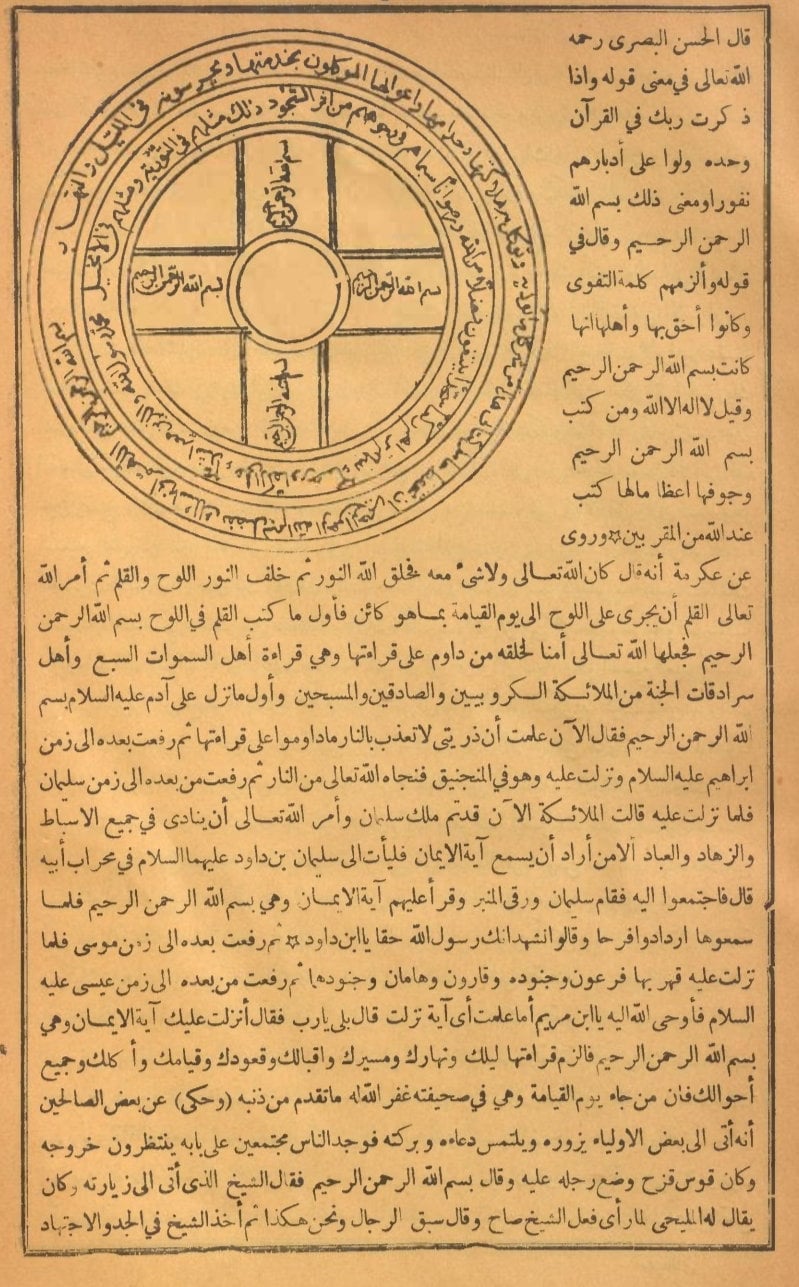 قال الحسن البصرى رحمه
الله تعالى في معنى قوله واذا
ذكرت ربك في القرآن
وحده ولوا على أدبارهم
نفورا ومعنى ذلك بسم الله
الرحمن الرحيم وقال في
قوله وألزمهم كلمة التقوى
وكانوا أحق بها وأهلها انها
كانت بسم الله الرحمن الرحيم
وقيل لا اله الا الله ومن كتب
بسم الله الرحمن الرحيم
وجوفها اعظا مالها كتب
عند الله من المقربين ☆ وروى
عن عكرمة أنه قال كان الله تعالى ولا شىء معه فخلق الله النور ثم خلف النور اللوح والقلم ثم أمر الله
تعالى القلم أن يجرى على اللوح الى يوم القيامة بما هو كائن فأول ما كتب القلم في اللوح بسم الله الرحمن
الرحيم فجعلها الله تعالى أمنا لخلقه من داوم على قراءتها وهي قراءة أهل السموات السبع وأهل
سرادقات الجنة من الملائكة الكروبيين والصادقين والمسبحين وأول ما نزل على آدم عليه السلام بسم
الله الرحمن الرحيم فقال الآن علمت أن ذريتى لا تعذب بالنار ماداموا على قراءتها ثم رفعت بعده الى زمن
ابراهيم عليه السلام ونزلت عليه وهو في المنجنيق فنجاه الله تعالى من النار ثم رفعت من بعده الى زمن سليمان
فلما نزلت عليه قالت الملائكة الآن قدتم ملك سليمان وأمر الله تعالى أن ينادى في جميع الاسباط
والزهاد والعباد ألا من أراد أن يسمع آية الايمان فليأت الى سليمان بن داود عليهما السلام في محراب أبيه
قال فاجتمعوا اليه فقام سليمان ورقى المنبر وقرأ عليهم آية الايمان وهي بسم الله الرحمن الرحيم فلما
سمعوها ازدادوا فرحا وقالوا نشهد انك رسول الله حقا يا ابن داود ☆ ثم رفعت بعده الى زمن موسى فلما
نزلت عليه قهر بها فرعون وجنوده وقارون وهامان وجنودهما ثم رفعت من بعده الى زمن عيسى عليه
السلام فأوحى الله اليه يا ابن مريم أما علمت أى آية نزلت قال بلى يارب فقال أنزلت عليك آية الايمان وهي
بسم الله الرحمن الرحيم فالزم قراءتها ليلك ونهارك ومسيرك واقبالك وقعودك وقيامك وأكلك وجميع
أحوالك فان من جاء يوم القيامة وهي في صحيفته غفر الله له ما تقدم من ذنبه (وحكى) عن بعض الصالحين
أنه أتى الى بعض الاولياء يزوره ويلتمس دعاءه وبركته فوجد الناس مجتمعين على بابه ينتظرون خروجه
وكان قوس قزح وضع رجله عليه وقال بسم الله الرحمن الرحيم فقال الشيخ الذى أتى الى زيارته وكان
يقال له المليحى لما رأى فعل الشيخ صاح وقال سبق الرجال ونحن هكذا ثم أخذ الشيخ في الجد والاجتهاد
بسم الله الرحمن الرحيم
بسم الله الرحمن الرحيم
بسم الله الرحمن الرحيم
بسم الله الرحمن الرحيم